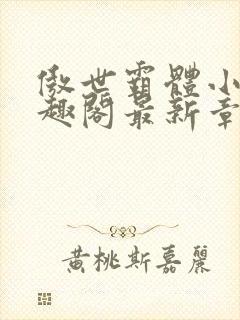 傲世霸體小
趣閣最新章
黃桃斯嘉麗